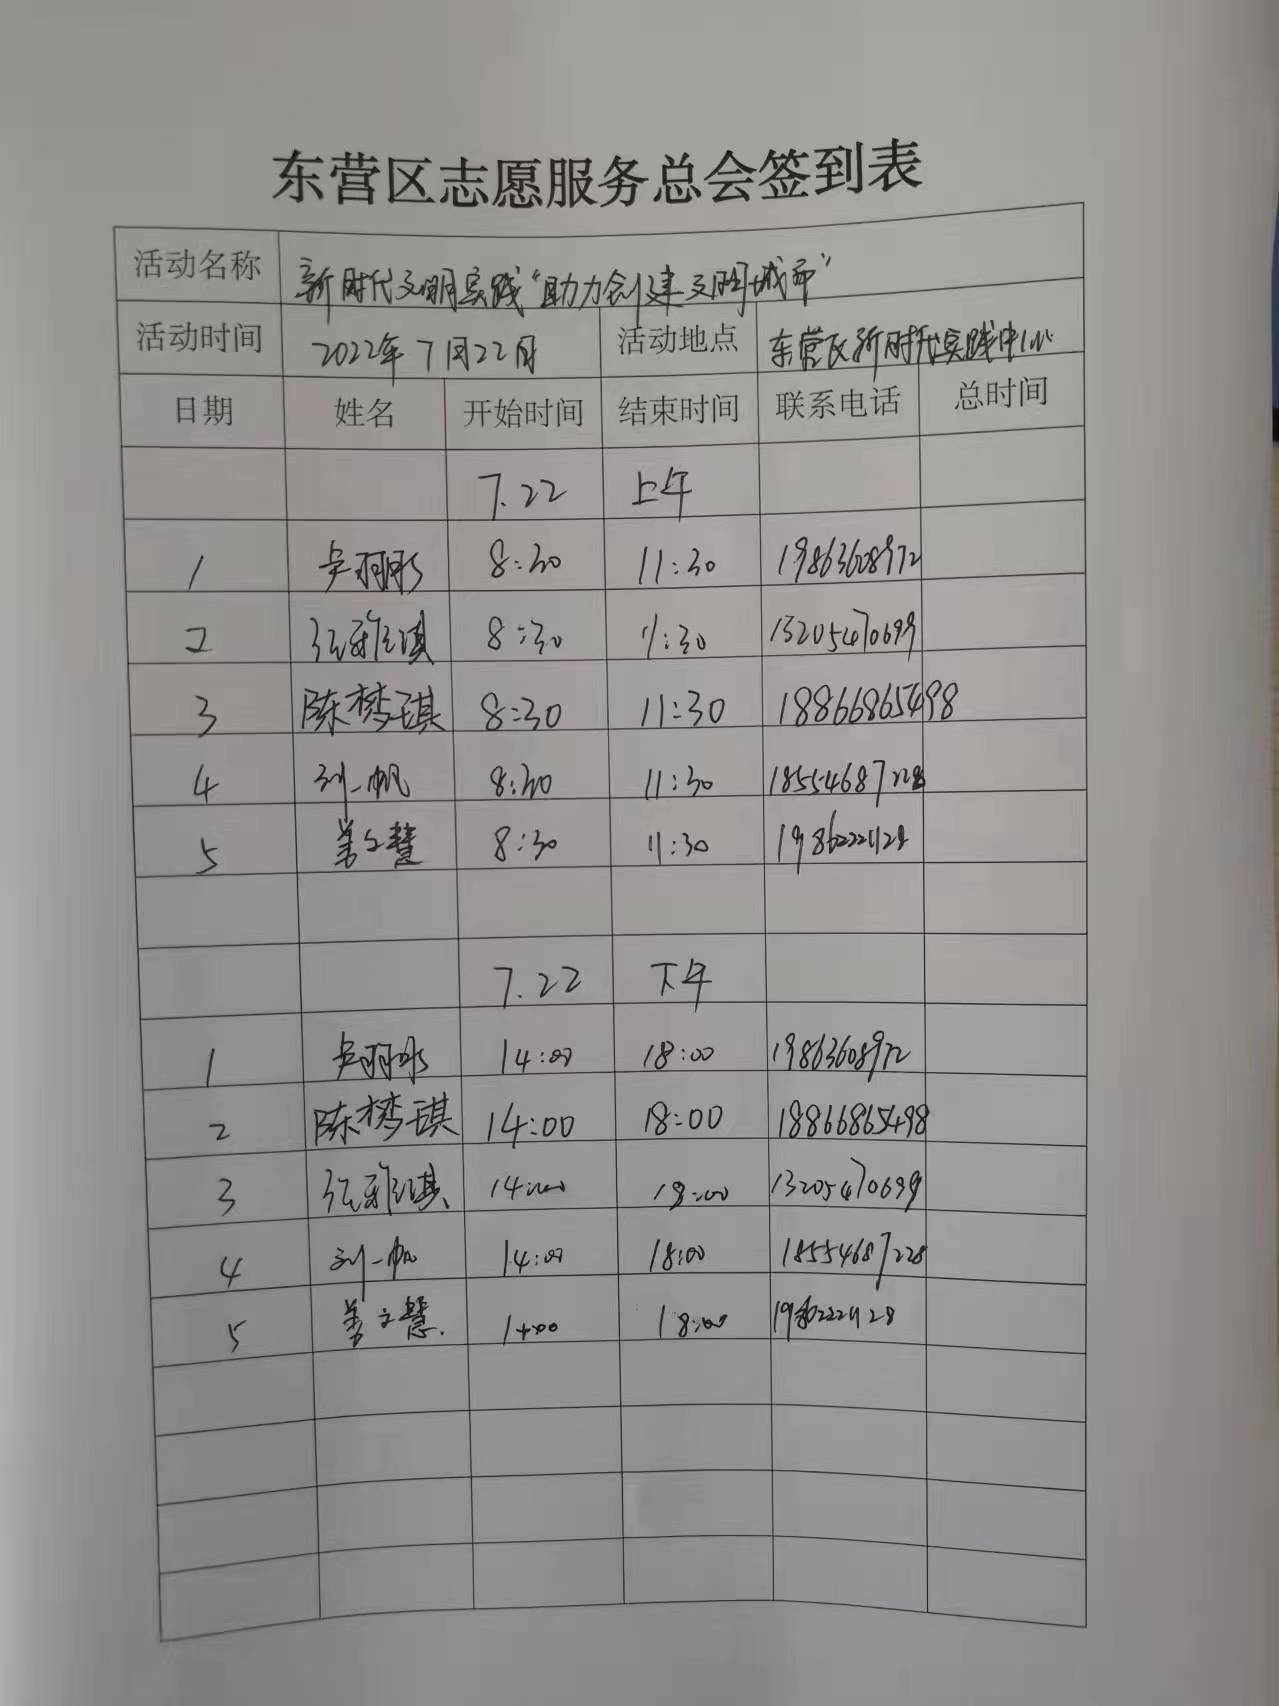 东营区志愿服务总会签到表
活动名称 新时代文明实践“助力创建文明城市”
活动时间 2022年7月22日 活动地点 东营区新时代实践中心
日期 姓名 开始时间 结束时间 联系电话 总时间
7.22 上午
1 8:30 11:30 19863608972
2 张雅琪 8:30 11:30 13205470699
3 陈梦琪 8:30 11:30 18866865498
4 刘一帆 8:30 11:30 18554687228
5 8:30 11:30 19862221128
7.22 下午
1 14:00 18:00 19863608972
2 陈梦琪 14:00 18:00 18866865498
3 张雅琪 14:00 18:00 13205470699
4 刘一帆 14:00 18:00 18554687228
5 14:00 18:00